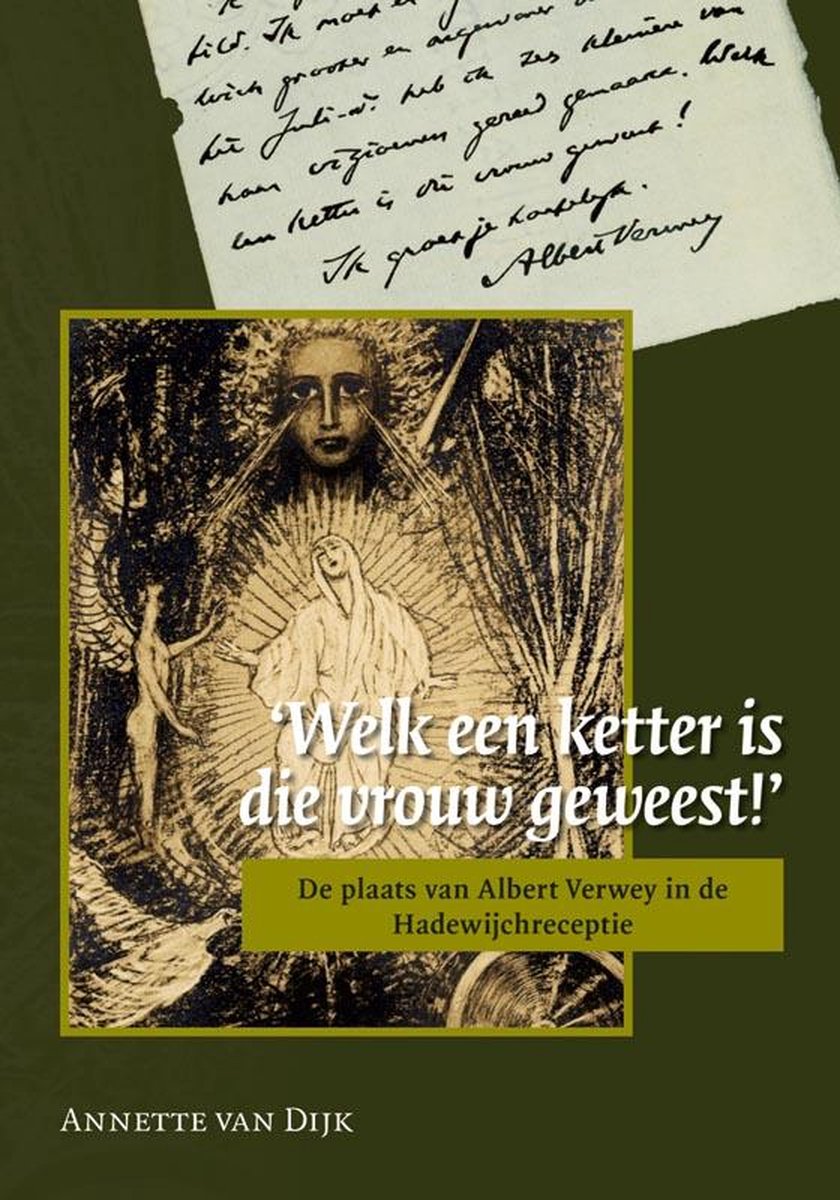 bild. Ik moet
wich grooter en ongewoner
het Juli-nr. heb ik zes kleinere van
haar vizioenen gereed gemaakt. Welk
een ketter is die vrouw geweest!
Ik groet je hartelijk.
Albert Verwey
‘Welk een ketter is
die vrouw geweest!’
De plaats van Albert Verwey in de
Hadewijchreceptie
Annette van Dijk